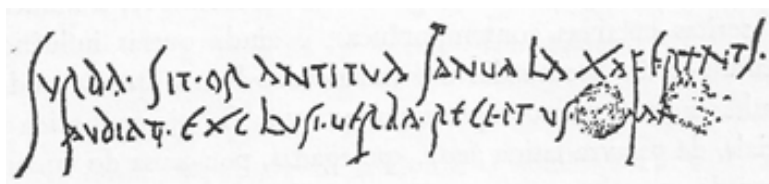 SVRDA·SIT·ORANTI TVA IANVA LAXA FERENTI·
AVDIAT·EXCLVSI·VERBA·RECEPTVS·